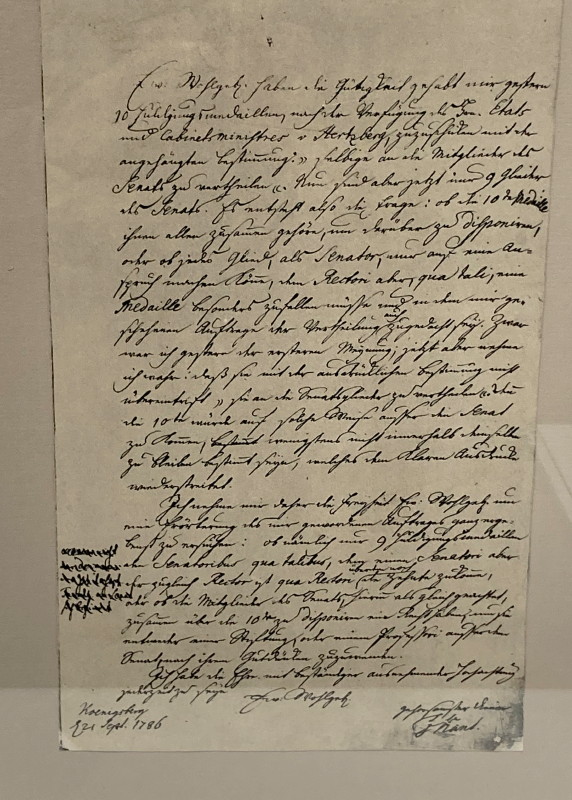 Ew: Wohlgeb. haben die Gütigkeit gehabt mir gestern
10 Huldigungsmedaillen, nach der Verfügung des Hrn. Etats
und Cabinetsministres v Hertzberg, zuzuschicken mit der
angehängten Bestimmung: „selbige an die Mitglieder des
Senats zu vertheilen". Nun sind aber jetzt nur 9 Glieder
des Senats. Es entsteht also die Frage: ob die 10te Medaille
ihnen allen zusammen gehöre, um darüber zu disponiren,
oder ob jedes Glied, als Senator, nur auf eine An-
spruch machen könne, dem Rectori aber, qua tali, eine
Medaille besonders zufallen müsse und in dem mir ge-
schehenen Auftrage der Vertheilung auch zugedacht sey. Zwar
war ich gestern der ersteren Meynung; jetzt aber nehme
ich wahr: daß sie mit der ausdrücklichen Bestimmung nicht
übereintrift „sie an die Senatsglieder zu vertheilen" denn
die 10te würde auf solche Weise ausser den Senat
zu kommen, wenigstens nicht innerhalb demselben
zu bleiben bestimmt seyn, welches dem klaren Ausdrucke
wiederstreitet.
Ich nehme mir daher die Freyheit Ew. Wohlgeb um
eine Erörterung des mir gewordenen Auftrages ganz erge-
benst zu ersuchen: ob nämlich nur 9 Huldigungsmedaillen
den Senatoribus qua talibus, dem einen Senatori aber
der zugleich Rector ist qua Rectori die zehnte zukomme,
oder ob die Mitglieder des Senats, hierin als gleich geachtet,
zusammen über die 10te zu disponiren ein Recht haben, um sie
entweder einer Stiftung, oder einem Professori ausser dem
Senat, nach ihrem Gutdünken zuzuwenden.
Ich habe die Ehre mit beständiger ausnehmender Hochachtung
jederzeit zu seyn Ew. Wohlgeb
Koenigsberg
d 21 Sept. 1786
gehorsamster Diener
I Kant.